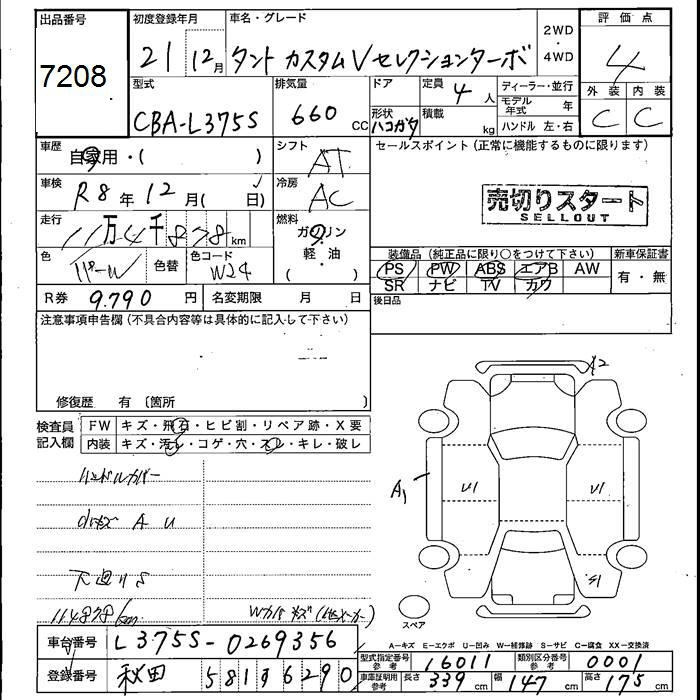 出品番号
7208
初度登録年月
21 12月
車名・グレード
タント カスタムVセレクションターボ
2WD
・
4WD
評価点
4
外装 内装
C C
型式
CBA-L375S
排気量
660 CC
ドア
形状
ハコガタ
定員
4人
積載
kg
ディーラー・並行
モデル年式 年
ハンドル 左・右
車歴
自家用・( )
シフト
AT
セールスポイント (正常に機能するものに限ります)
車検
R8年12月( 日)
冷房
AC
売切りスタート
SELLOUT
走行
11万4千878km
燃料
ガソリン
軽・油
( )
色
パール
色替
色コード
W24
装備品 (純正品に限り○をつけて下さい)
PS PW ABS エアB AW
SR ナビ TV カワ
新車保証書
有・無
後日品
R券 9,790円
名変期限 月 日
注意事項申告欄 (不具合内容等は具体的に記入して下さい)
修復歴 有 〔箇所 〕
検査員
記入欄
FW キズ・飛石・ヒビ割・リペア跡・X要
内装 キズ・汚レ・コゲ・穴・スレ・キレ・破レ
ハンドルカバー
A U
下廻りS
114878km
A2
A1
U1
U1
S1
スペア
車台番号 L375S-0269356
登録番号 秋田 581 す 6290
A－キズ E－エクボ U－凹み W－補修跡 S－サビ C－腐食 XX－交換済
型式指定番号
参考
16011
類別区分番号
参考
0001
車庫証明用
参考
長さ 339cm 幅 147cm 高さ 175cm